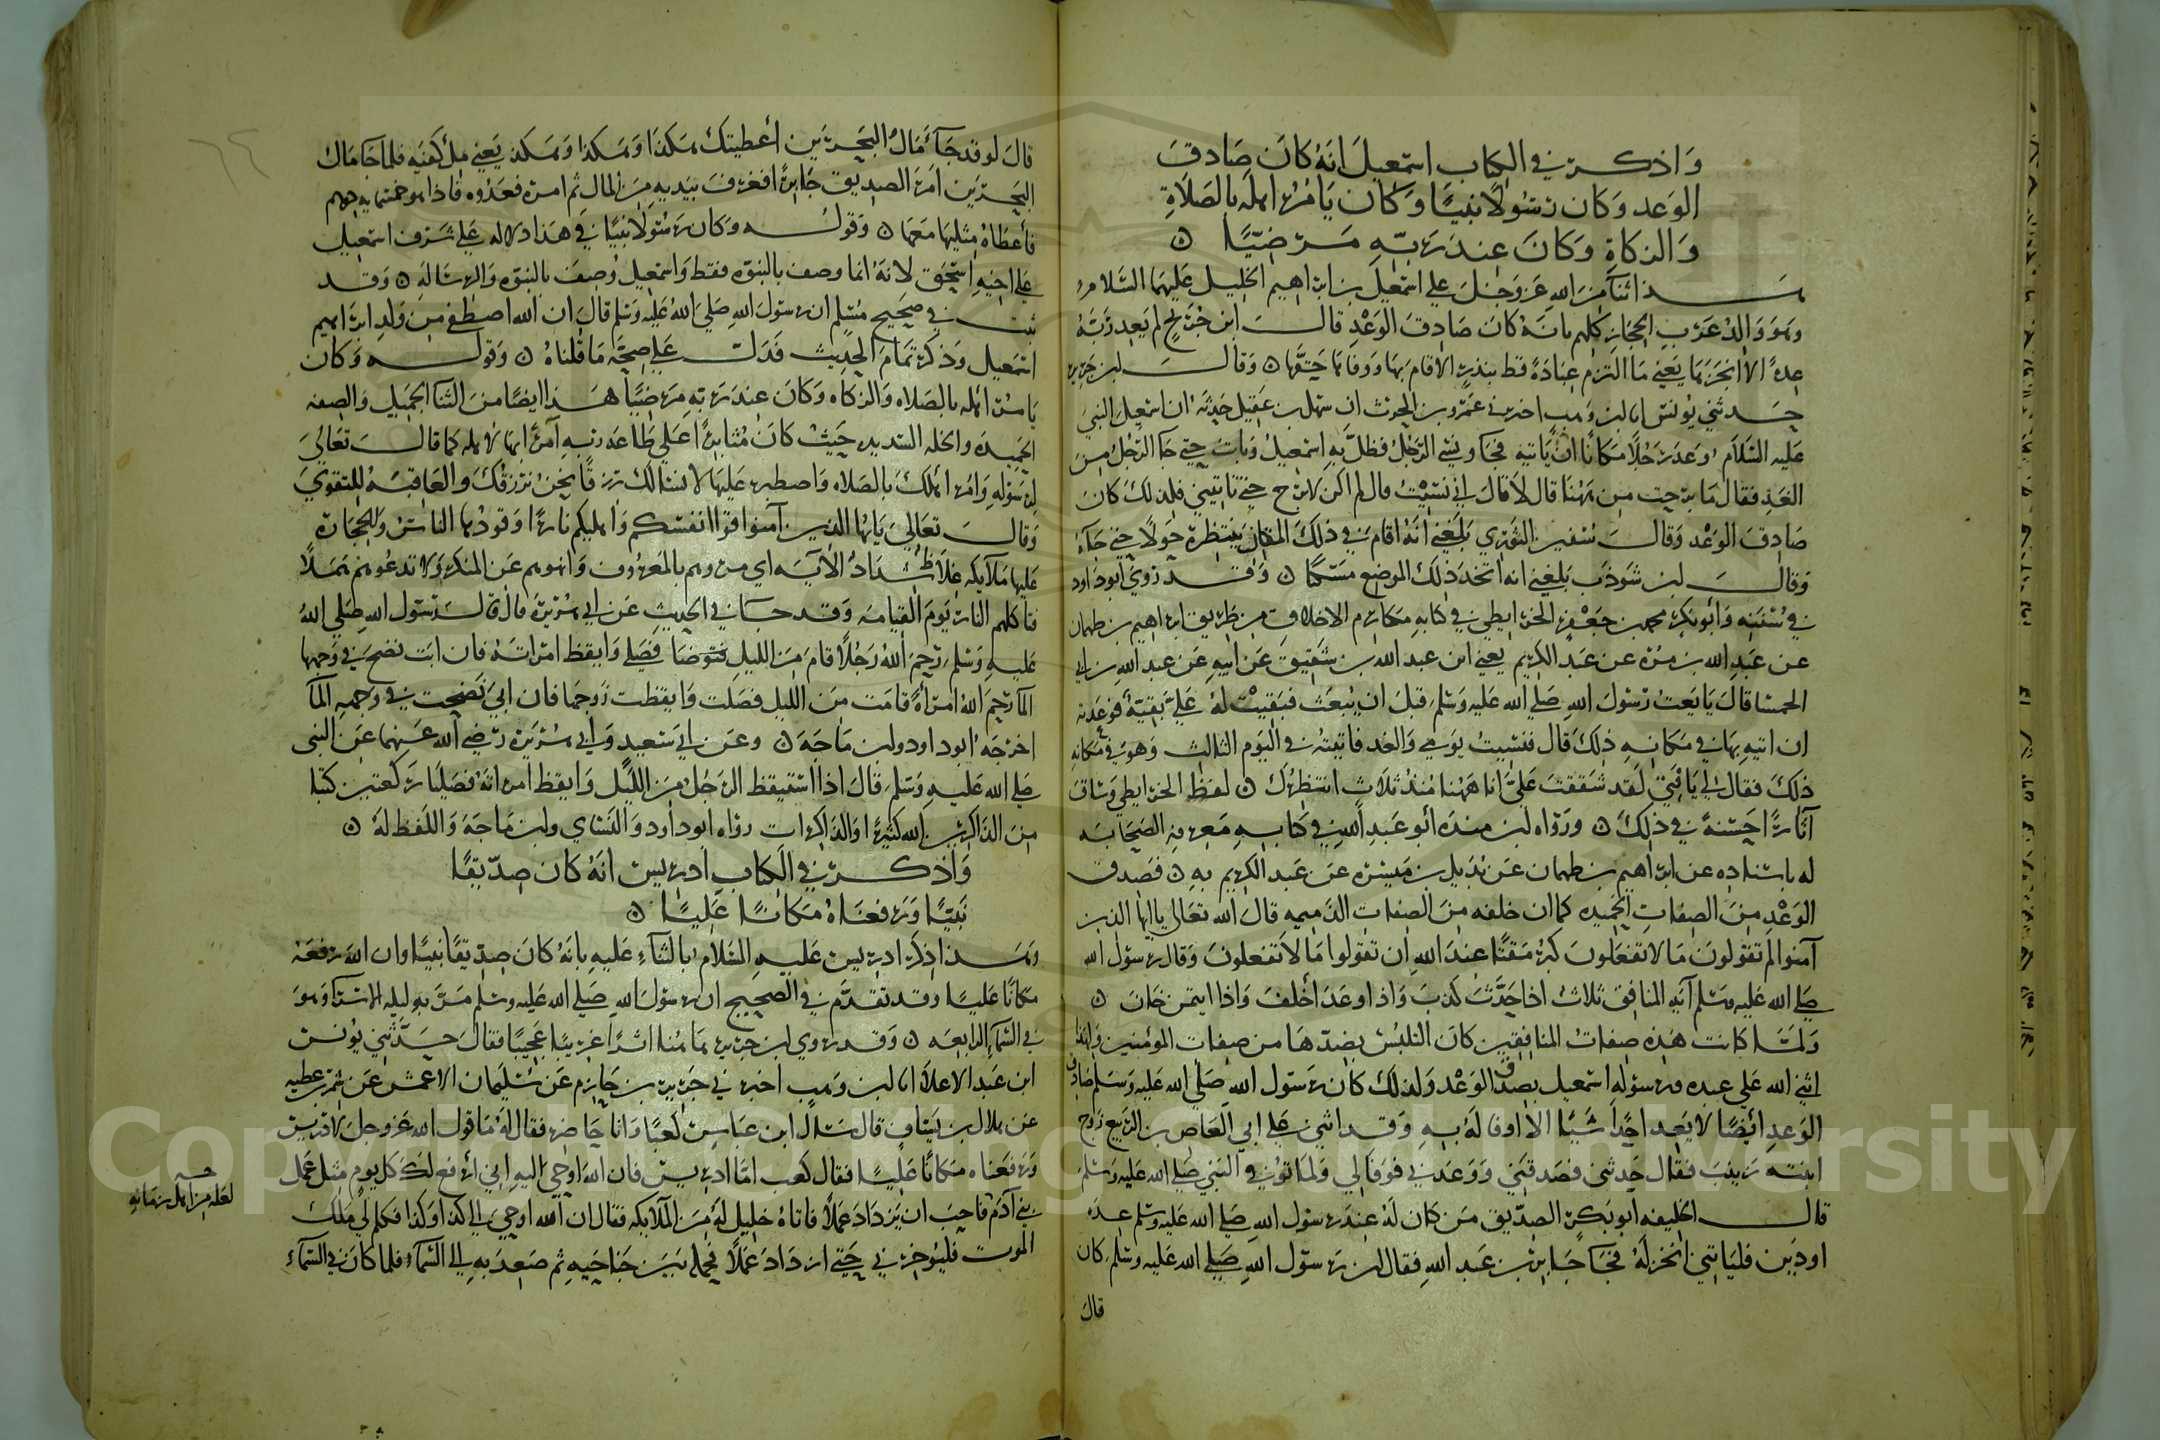 واذكر في الكتاب اسمعيل انه كان صادق
الوعد وكان رسولا نبيا وكان يامر اهله بالصلاة
والزكاة وكان عند ربه مرضيا ۞
هذا ثناء من الله عز وجل علي اسمعيل بن ابراهيم الخليل عليهما السلام
وهو والد عرب الحجاز كلهم بانه كان صادق الوعد قال ابن جريج لم يعد ربه
عدة الا انجزها يعني ما التزم عبادة قط بنذر الا قام بها ووفاها حقها ۞ وقال ابن جرير
حدثني يونس انا ابن وهب اخبرني عمرو بن الحرث ان سهل بن عقيل حدثه ان اسمعيل النبي
عليه السلام وعد رجلا مكانا ان ياتيه فجا ونسي الرجل فظل به اسمعيل وبات حتي جا الرجل من
الغد فقال ما برحت من ههنا قال لا قال اني نسيت قال لم اكن لابرح حتي تاتيني فلذلك كان
صادق الوعد وقال سفين الثوري بلغني انه اقام في ذلك المكان ينتظره حولا حتي جاه
وقال ابن شوذب بلغني انه اتخذ ذلك الموضع مسكنا ۞ وقد روي ابو داود
في سننه وابو بكر محمد بن جعفر الخرايطي في كتابه مكارم الاخلاق من طريق ابراهيم بن طهمان
عن عبد الله بن ميسرة عن عبد الكريم يعني ابن عبد الله بن شقيق عن ابيه عن عبد الله بن ابي
الحمسا قال بايعت رسول الله صلي الله عليه وسلم قبل ان يبعث فبقيت له علي بقية فوعدته
ان اتيه بها في مكانه ذلك قال فنسيت يومي والغد فاتيته في اليوم الثالث وهو في مكانه
ذلك فقال لي يا فتي لقد شققت علي انا ههنا منذ ثلاث انتظرك ۞ لفظ الخرايطي وساق
آثارا حسنة في ذلك ۞ ورواه ابن منده ابو عبد الله في كتابه معرفة الصحابة
له باسناده عن ابراهيم بن طهمان عن بديل بن ميسرة عن عبد الكريم به ۞ فصدق
الوعد من الصفات الحميده كما ان خلفه من الصفات الذميمه قال الله تعالى يا ايها الذين
آمنوا لم تقولون ما لا تفعلون كبر مقتا عند الله ان تقولوا ما لا تفعلون وقال رسول الله
صلي الله عليه وسلم آية المنافق ثلاث اذا حدث كذب واذا وعد اخلف واذا ايتمن خان ۞
ولما كانت هذه صفات المنافقين كان التلبس بضدها من صفات المؤمنين ولهذا
اثني الله علي عبده ورسوله اسمعيل بصدق الوعد ولذلك كان رسول الله صلي الله عليه وسلم صادق
الوعد ايضا لا يعد احدا شيئا الا اوفا له به وقد اثني علي ابي العاص بن الربيع زوج
ابنته زينب فقال حدثني فصدقني ووعدني فوفالي ولما توفي النبي صلي الله عليه وسلم
قال الخليفه ابو بكر الصديق من كان له عند رسول الله صلي الله عليه وسلم عده
او دين فلياتني انجز له فجا جابر بن عبد الله فقال ان رسول الله صلي الله عليه وسلم كان
قال
قال لو قد جآء مال البحرين اعطيتك هكذا وهكذا وهكذا يعني مل كفيه فلما جا مال
البحرين امر الصديق جابرا فغرف بيديه من المال ثم امره فعده فاذا هو خمسمايه درهم
فاعطاه مثليها معها ۞ وقوله وكان رسولا نبيا في هذا دلاله علي شرف اسمعيل
علي اخيه اسحق لانه انما وصف بالنبوه فقط واسمعيل وصف بالنبوه والرسالة ۞ وقد
ثبت في صحيح مسلم ان رسول الله صلي الله عليه وسلم قال ان الله اصطفي من ولد ابراهيم
اسمعيل وذكر تمام الحديث فدل علي صحة ما قلناه ۞ وقوله وكان
يامر اهله بالصلاه والزكاه وكان عند ربه مرضيا هذا ايضا من الثنا الجميل والصفه
الحميده والخله السديده حيث كان مثابرا علي طاعة ربه آمرا بها لاهله كما قال تعالي
لرسوله وامر اهلك بالصلاه واصطبر عليها لا نسالك رزقا نحن نرزقك والعاقبة للتقوي
وقال تعالي يا ايها الذين آمنوا قوا انفسكم واهليكم نارا وقودها الناس والحجارة
عليها ملآيكه غلاظ شداد الآيه اي مروهم بالمعروف وانهوهم عن المنكر ولا تدعوهم هملا
فتاكلهم النار يوم القيامه وقد جا في الحديث عن ابي هريرة قال قال رسول الله صلي الله
عليه وسلم رحم الله رجلا قام من الليل فتوضا فصلي وايقظ امراته فان ابت نضح في وجهها
المآ رحم الله امرأة قامت من الليل فصلت وايقظت زوجها فان ابي نضحت في وجهه المآ
اخرجه ابو داود وابن ماجة ۞ وعن ابي سعيد وابي هريرة رضي الله عنهما عن النبي
صلي الله عليه وسلم قال اذا استيقظ الرجل من الليل وايقظ امراته فصليا ركعتين كتبا
من الذاكرين الله كثيرا والذاكرات رواه ابو داود والنساي وابن ماجة واللفظ له ۞
واذكر في الكتاب ادريس انه كان صديقا
نبيا ورفعناه مكانا عليا ۞
وهذا ذكر ادريس عليه السلام بالثناء عليه بانه كان صديقا نبيا وان الله رفعه
مكانا عليا وقد تقدم في الصحيح ان رسول الله صلي الله عليه وسلم مر به ليلة الاسرا وهو
في السماء الرابعه ۞ وقد روي ابن جرير هاهنا اثرا غريبا عجيبا فقال حدثني يونس
ابن عبد الاعلا انا ابن وهب اخبرني جرير بن حازم عن سليمان الاعمش عن شمر بن عطيه
عن هلال بن يساف قال سال ابن عباس كعبا وانا حاضر فقال له ما قول الله عز وجل لادريس
ورفعناه مكانا عليا فقال كعب اما ادريس فان الله اوحي اليه اني ارفع لك كل يوم مثل عمل
بني آدم فاحب ان يزداد عملا فاتاه خليل له من الملآيكه فقال ان الله اوحي الي كذا وكذا فكلم لي ملك
الموت فليوخرني حتي ازداد عملا فحمله بين جناحيه ثم صعد به الي السماء فلما كان في السماء
لعله من اهل زمانه
Copy
University